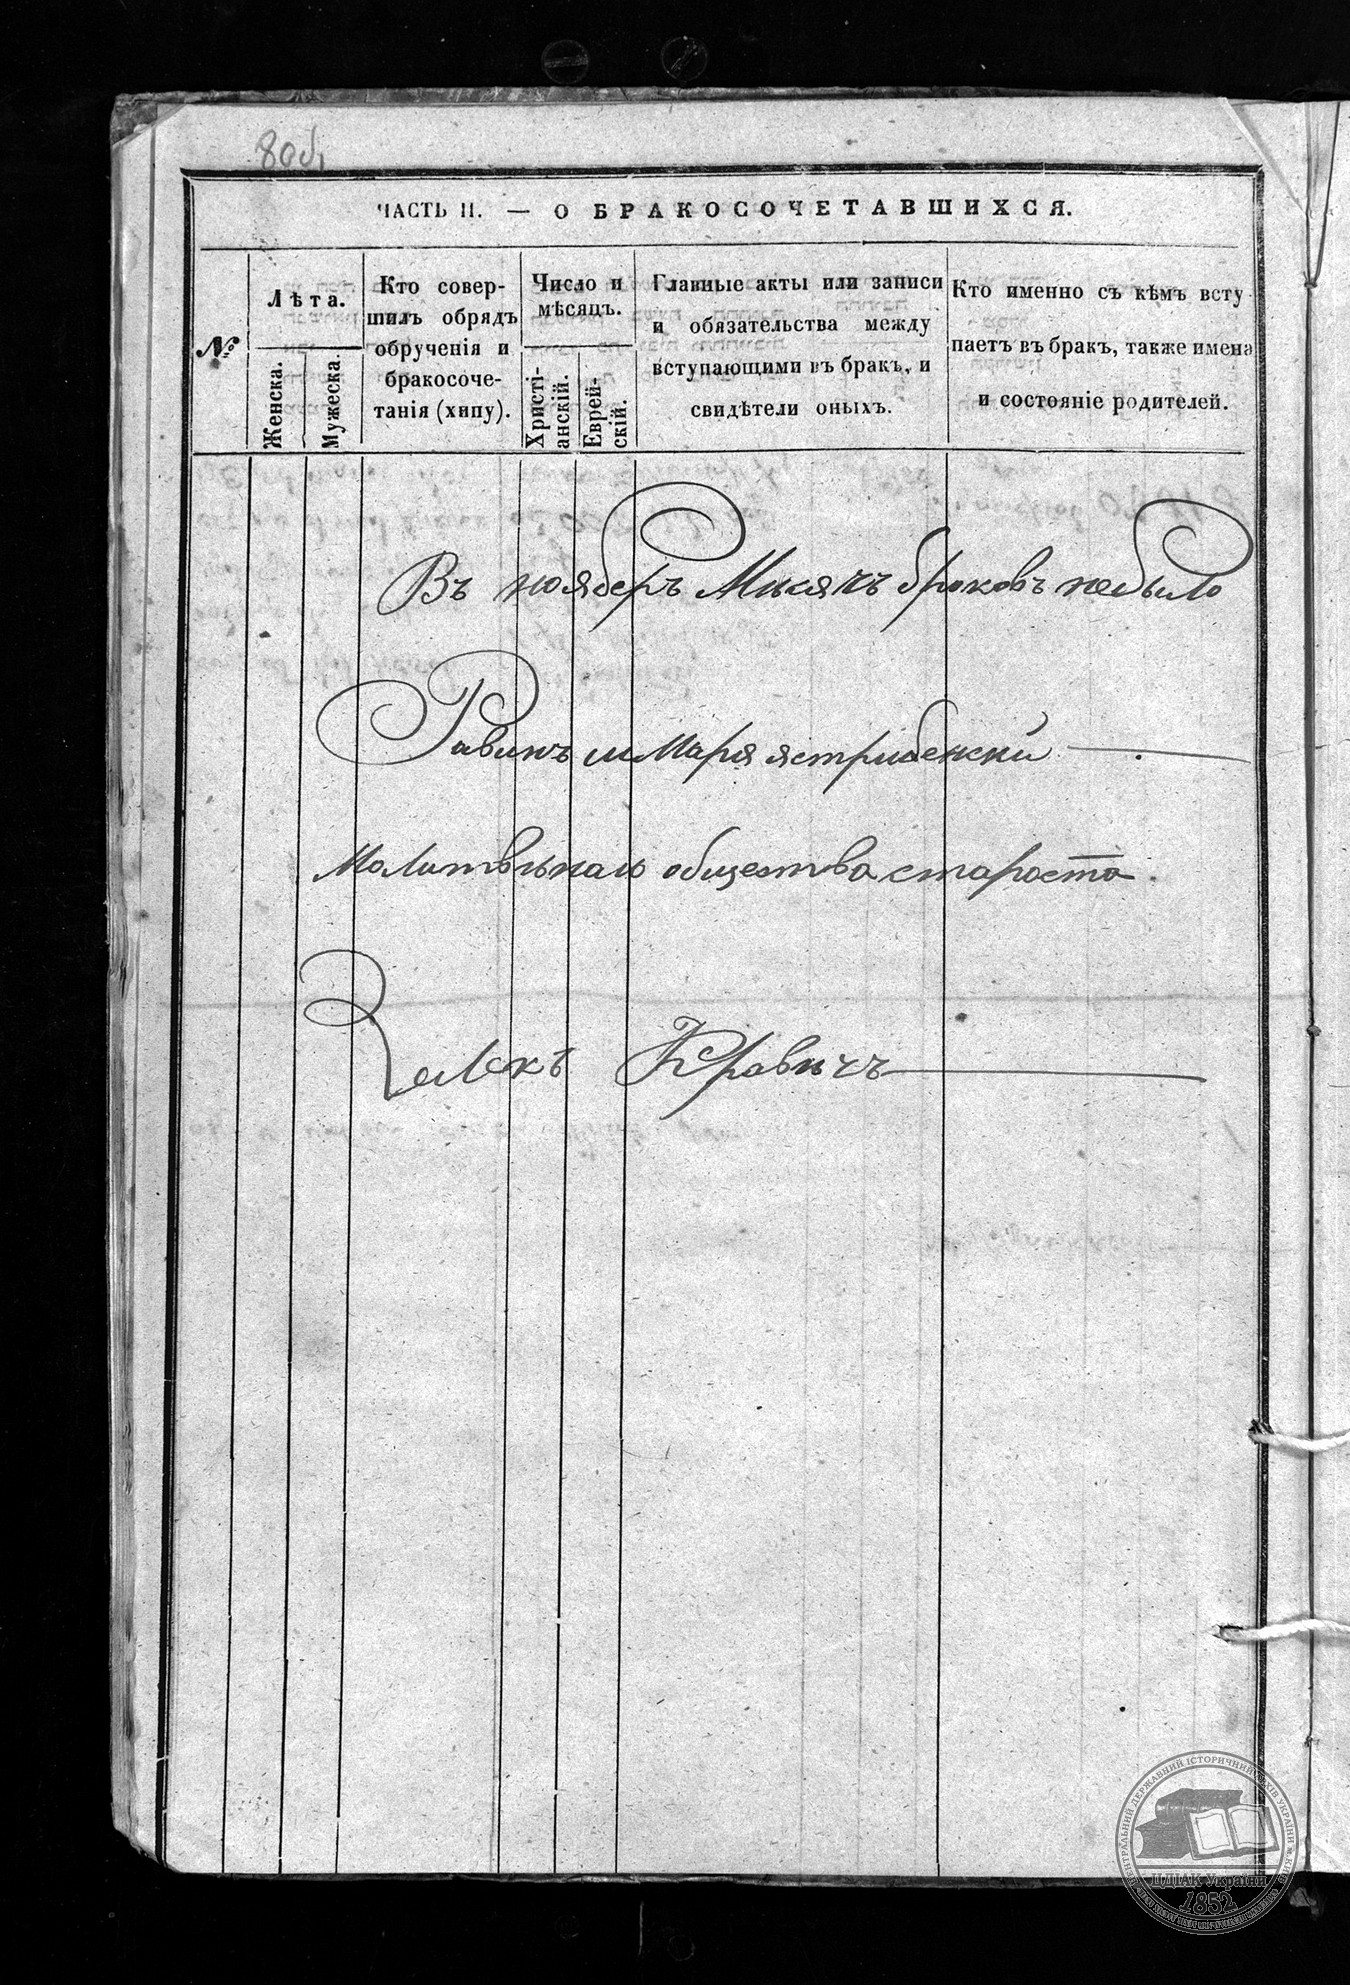 80об,
ЧАСТЬ II. — О БРАКОСОЧЕТАВШИХСЯ.
№
Лѣта.
Женска.
Мужеска.
Кто совер-
шилъ обрядъ
обрученія и
бракосоче-
танія (хипу).
Число и
мѣсяцъ.
Христі-
анскій.
Еврей-
скій.
Главные акты или записи
и обязательства между
вступающими въ бракъ, и
свидѣтели оныхъ.
Кто именно съ кѣмъ всту
паетъ въ бракъ, также имена
и состояніе родителей.
Въ нояберъ Мисяцъ браковъ небыло
Равинъ Шмаря ястрибенски
общества староста.
Зелекъ Кравичъ
ЦЕНТРАЛЬНИЙ ДЕРЖАВНИЙ ІСТОРИЧНИЙ АРХІВ УКРАЇНИ м. КИЇВ
ЦДІАК України
1852